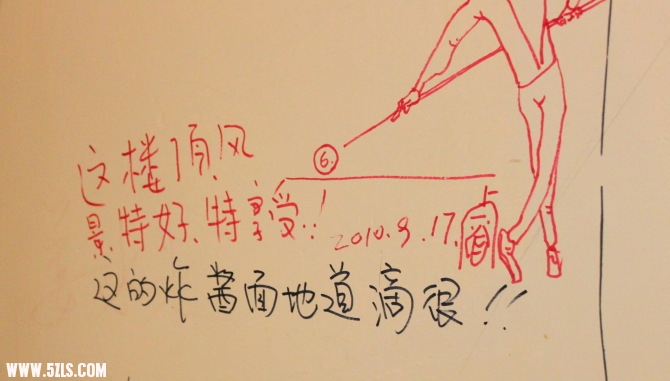 这楼顶风
景特好、特享受!!
2010.9.17.
6
这的炸酱面地道滴很!!
WWW.5ZLS.COM